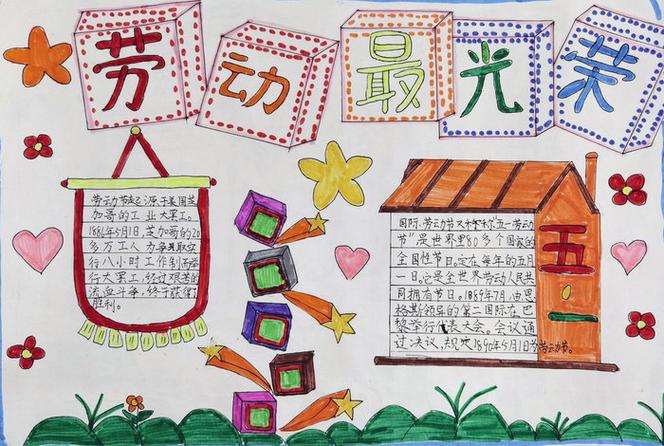 劳动最光荣
劳动节起源于美国芝
加哥的工业大罢工。
1886年5月1日,芝加哥的20
多万工人为争取实
行八小时工作制而举
行大罢工,经过艰苦的
流血斗争,终于获得了
胜利。
国际劳动节又称"五一劳动
节"是世界里80多个国家的
全国性节日。定在每年的五月
一日。它是全世界劳动人民共
同拥有节日。1889年7月,由恩
格斯领导的第二国际在巴
黎举行代表大会。会议通
过决议,规定1890年5月1日为劳动节。
五一